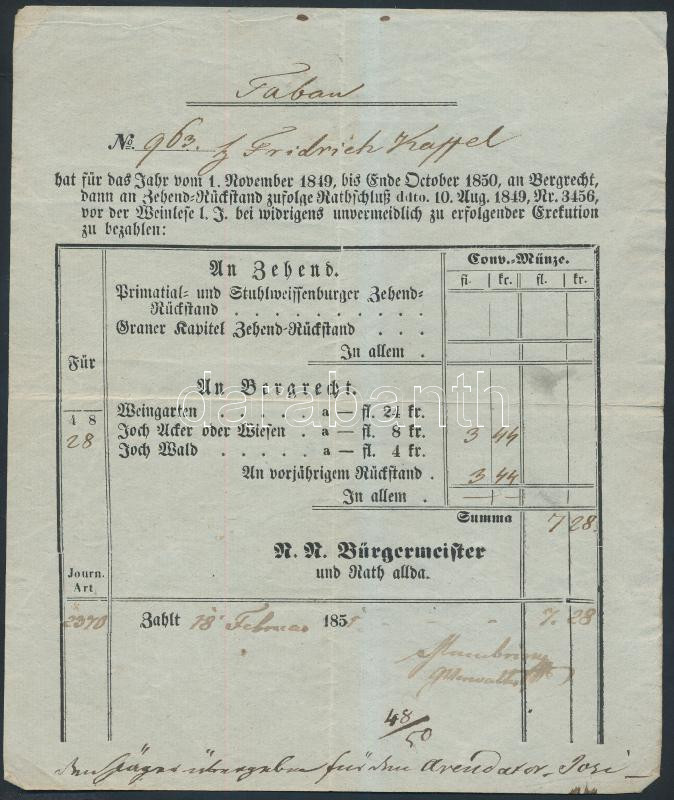 Taban
No. 963. Fridrich Kappel
hat für das Jahr vom 1. November 1849, bis Ende October 1850, an Bergrecht,
dann an Zehend-Rückstand zufolge Rathschluß ddto. 10. Aug. 1849, Nr. 3456,
vor der Weinlese l. J. bei widrigens unvermeidlich zu erfolgender Exekution
zu bezahlen:
Conv.-Münze.
fl. kr. fl. kr.
An Zehend.
Primatial- und Stuhlweissenburger Zehend-
Rückstand . . . . . . . . . .
Graner Kapitel Zehend-Rückstand . . .
In allem .
Für
An Bergrecht.
Weingarten . . . . . a — fl. 24 kr.
4 8
Joch Acker oder Wiesen . a — fl. 8 kr. 3 44
28
Joch Wald . . . . . a — fl. 4 kr.
An vorjährigem Rückstand . 3 44
In allem . — —
Summa 7 28.
N. N. Bürgermeister
und Rath allda.
Journ.
Art.
2390 Zahlt 18 Februar 1851 - - - 7. 28
48/50
den Jäger übergeben für den Arendator
darabanth